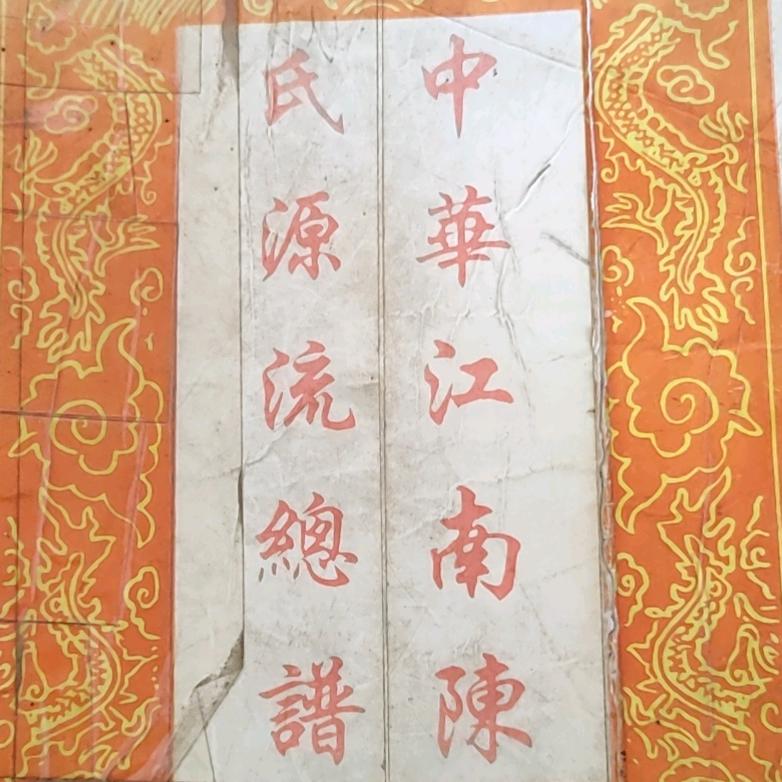 中華江南陳
氏源流總譜